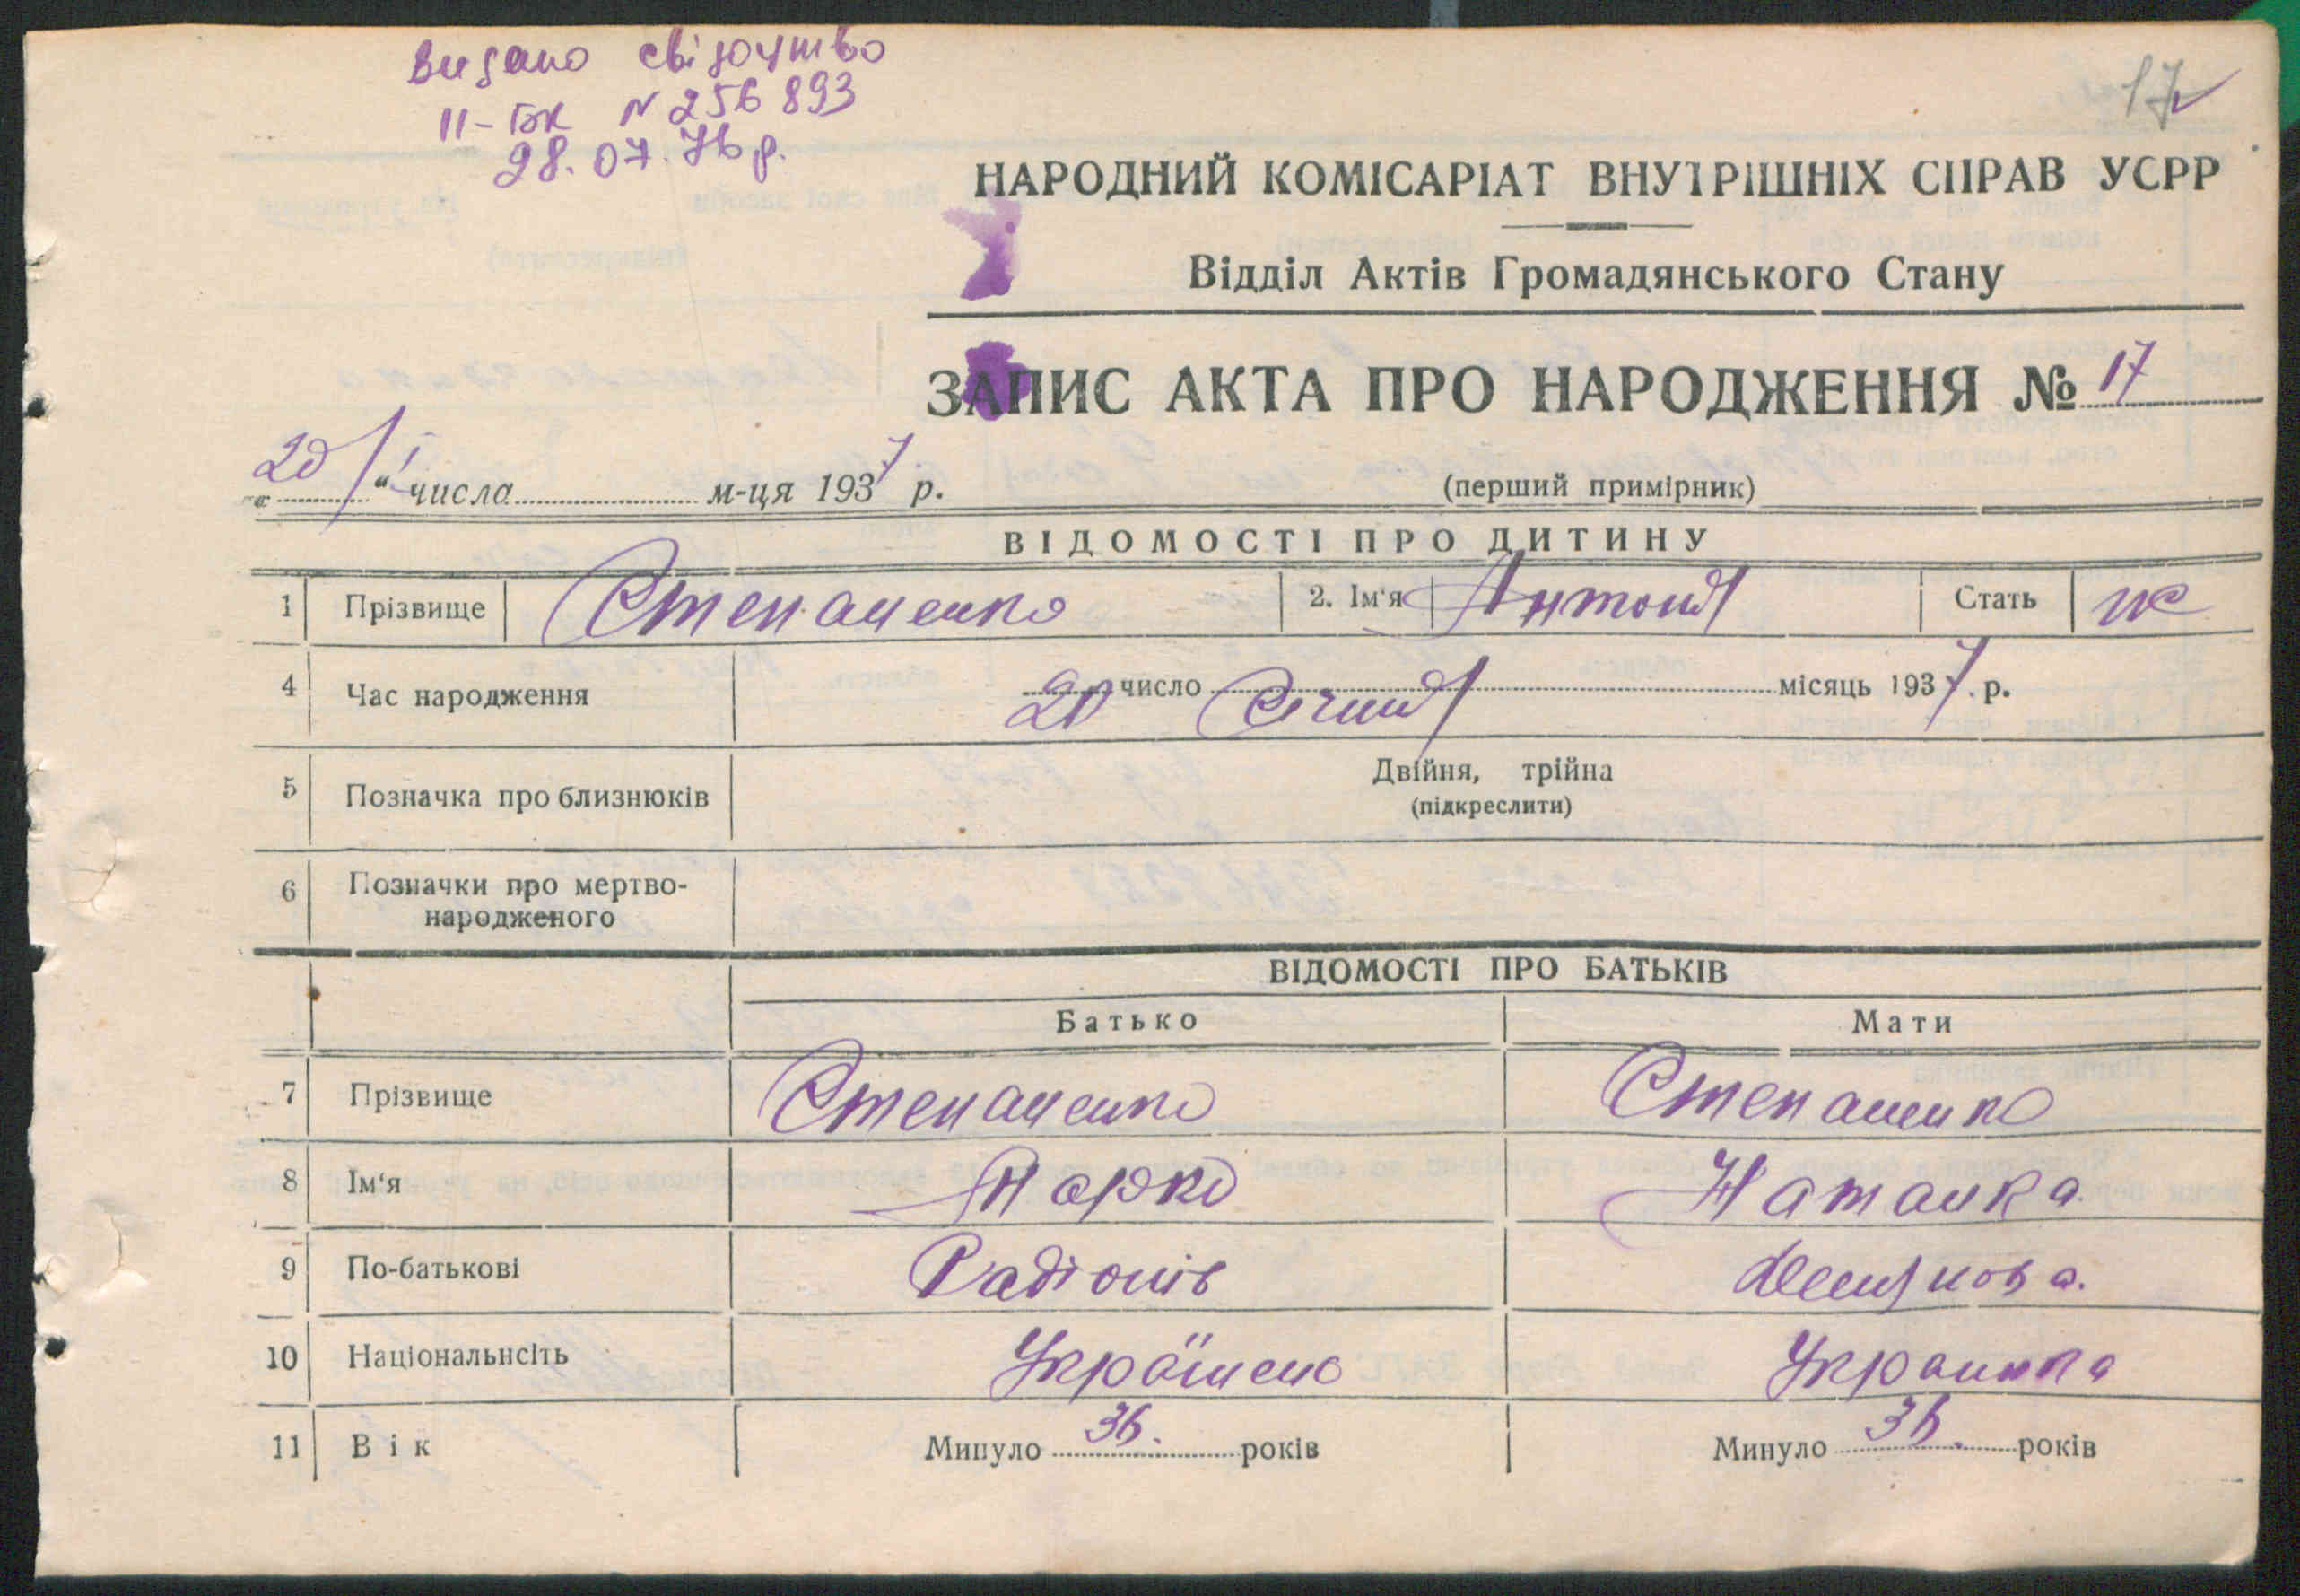 Видано свідоцтво
II-БК № 256 893
28.07.76 р.
17
НАРОДНИЙ КОМІСАРІАТ ВНУТРІШНІХ СПРАВ УСРР
Відділ Актів Громадянського Стану
ЗАПИС АКТА ПРО НАРОДЖЕННЯ № 17
„20/I“ числа м-ця 1937 р.
(перший примірник)
ВІДОМОСТІ ПРО ДИТИНУ
1 Прізвище Степаненко 2. Ім'я Антон Стать
4 Час народження 20 число Січня місяць 1937. р.
5 Позначка про близнюків Двійня, трійна
(підкреслити)
6 Позначки про мертво-
народженого
ВІДОМОСТІ ПРО БАТЬКІВ
Батько Мати
7 Прізвище Степаненко Степаненко
8 Ім'я Марко Наталка
9 По-батькові Радіонів
10 Національнсіть Українець Українка
11 Вік Минуло 36. років Минуло 36. років